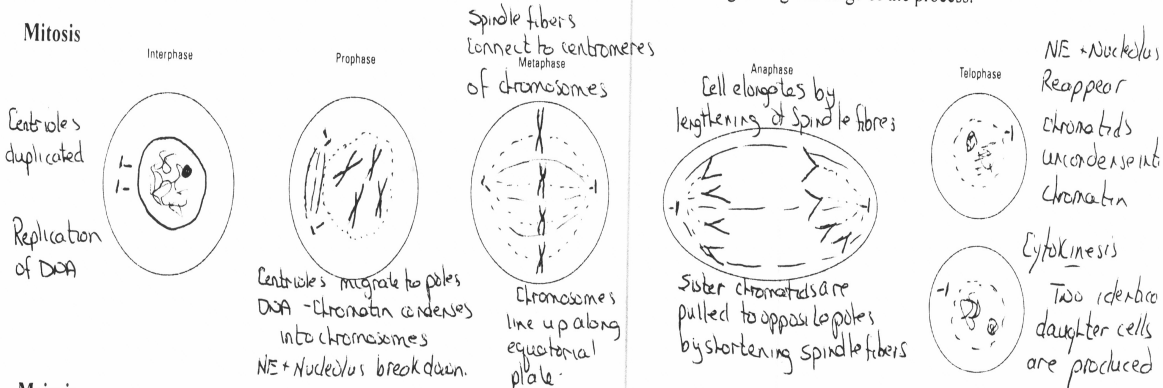 Mitosis
Interphase
Centrioles
duplicated
Replication
of DNA
Prophase
Centrioles migrate to poles
DNA - Chromatin condenses
into chromosomes
NE + Nucleolus breakdown.
Spindle fibers
Connect to centromeres
Metaphase
of chromosomes
Chromosomes
line up along
equatorial
plate.
Anaphase
Cell elongates by
lengthening of Spindle fibres
Sister chromatids are
pulled to opposite poles
by shortening spindle fibers
Telophase
NE + Nucleolus
Reappear
Chromatids
uncondense int
chromatin
Cytokinesis
Two identica
daughter cells
are produced